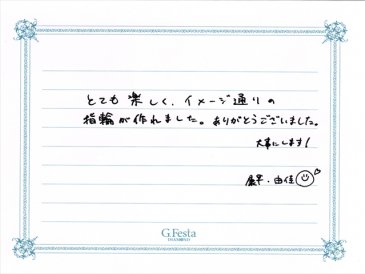 とても楽しく、イメージ通りの
指輪が作れました。ありがとうございました。
大事にします！
・由佳
G.Festa
DIAMOND